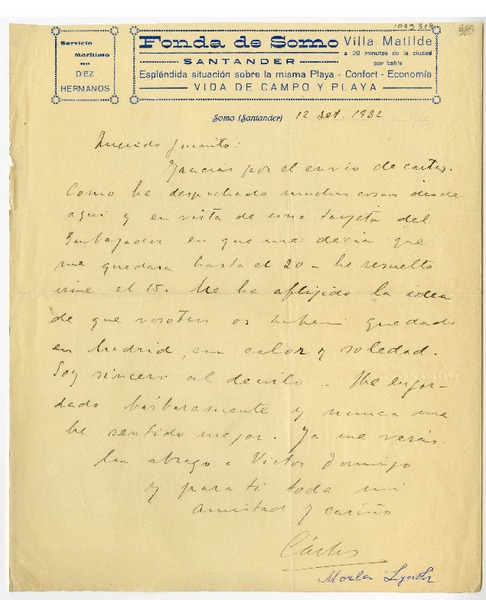 Servicio
Marítimo
DIEZ
HERMANOS
Fonda de Somo
SANTANDER
Villa Matilde
a 20 minutos de la ciudad
por bahía
Espléndida situación sobre la misma Playa - Confort - Economía
VIDA DE CAMPO Y PLAYA
Somo (Santander) 12 Set. 1932
Querido Juanito:
Gracias por el envío de cartas.
Como he despachado muchas cosas desde
aquí y en vista de una tarjeta del
Embajador en que me decía que
me quedara hasta el 20 - he resuelto
irme el 15. Me ha afligido la idea
de que vosotros os habéis quedado
en Madrid, con calor y soledad.
Soy sincero al decirlo.. He engor-
dado bárbaramente y nunca me
he sentido mejor. Ya me verás.
Un abrazo a Victor Domingo
y para ti toda mi
amistad y cariño
Carlos
Morla Lynch